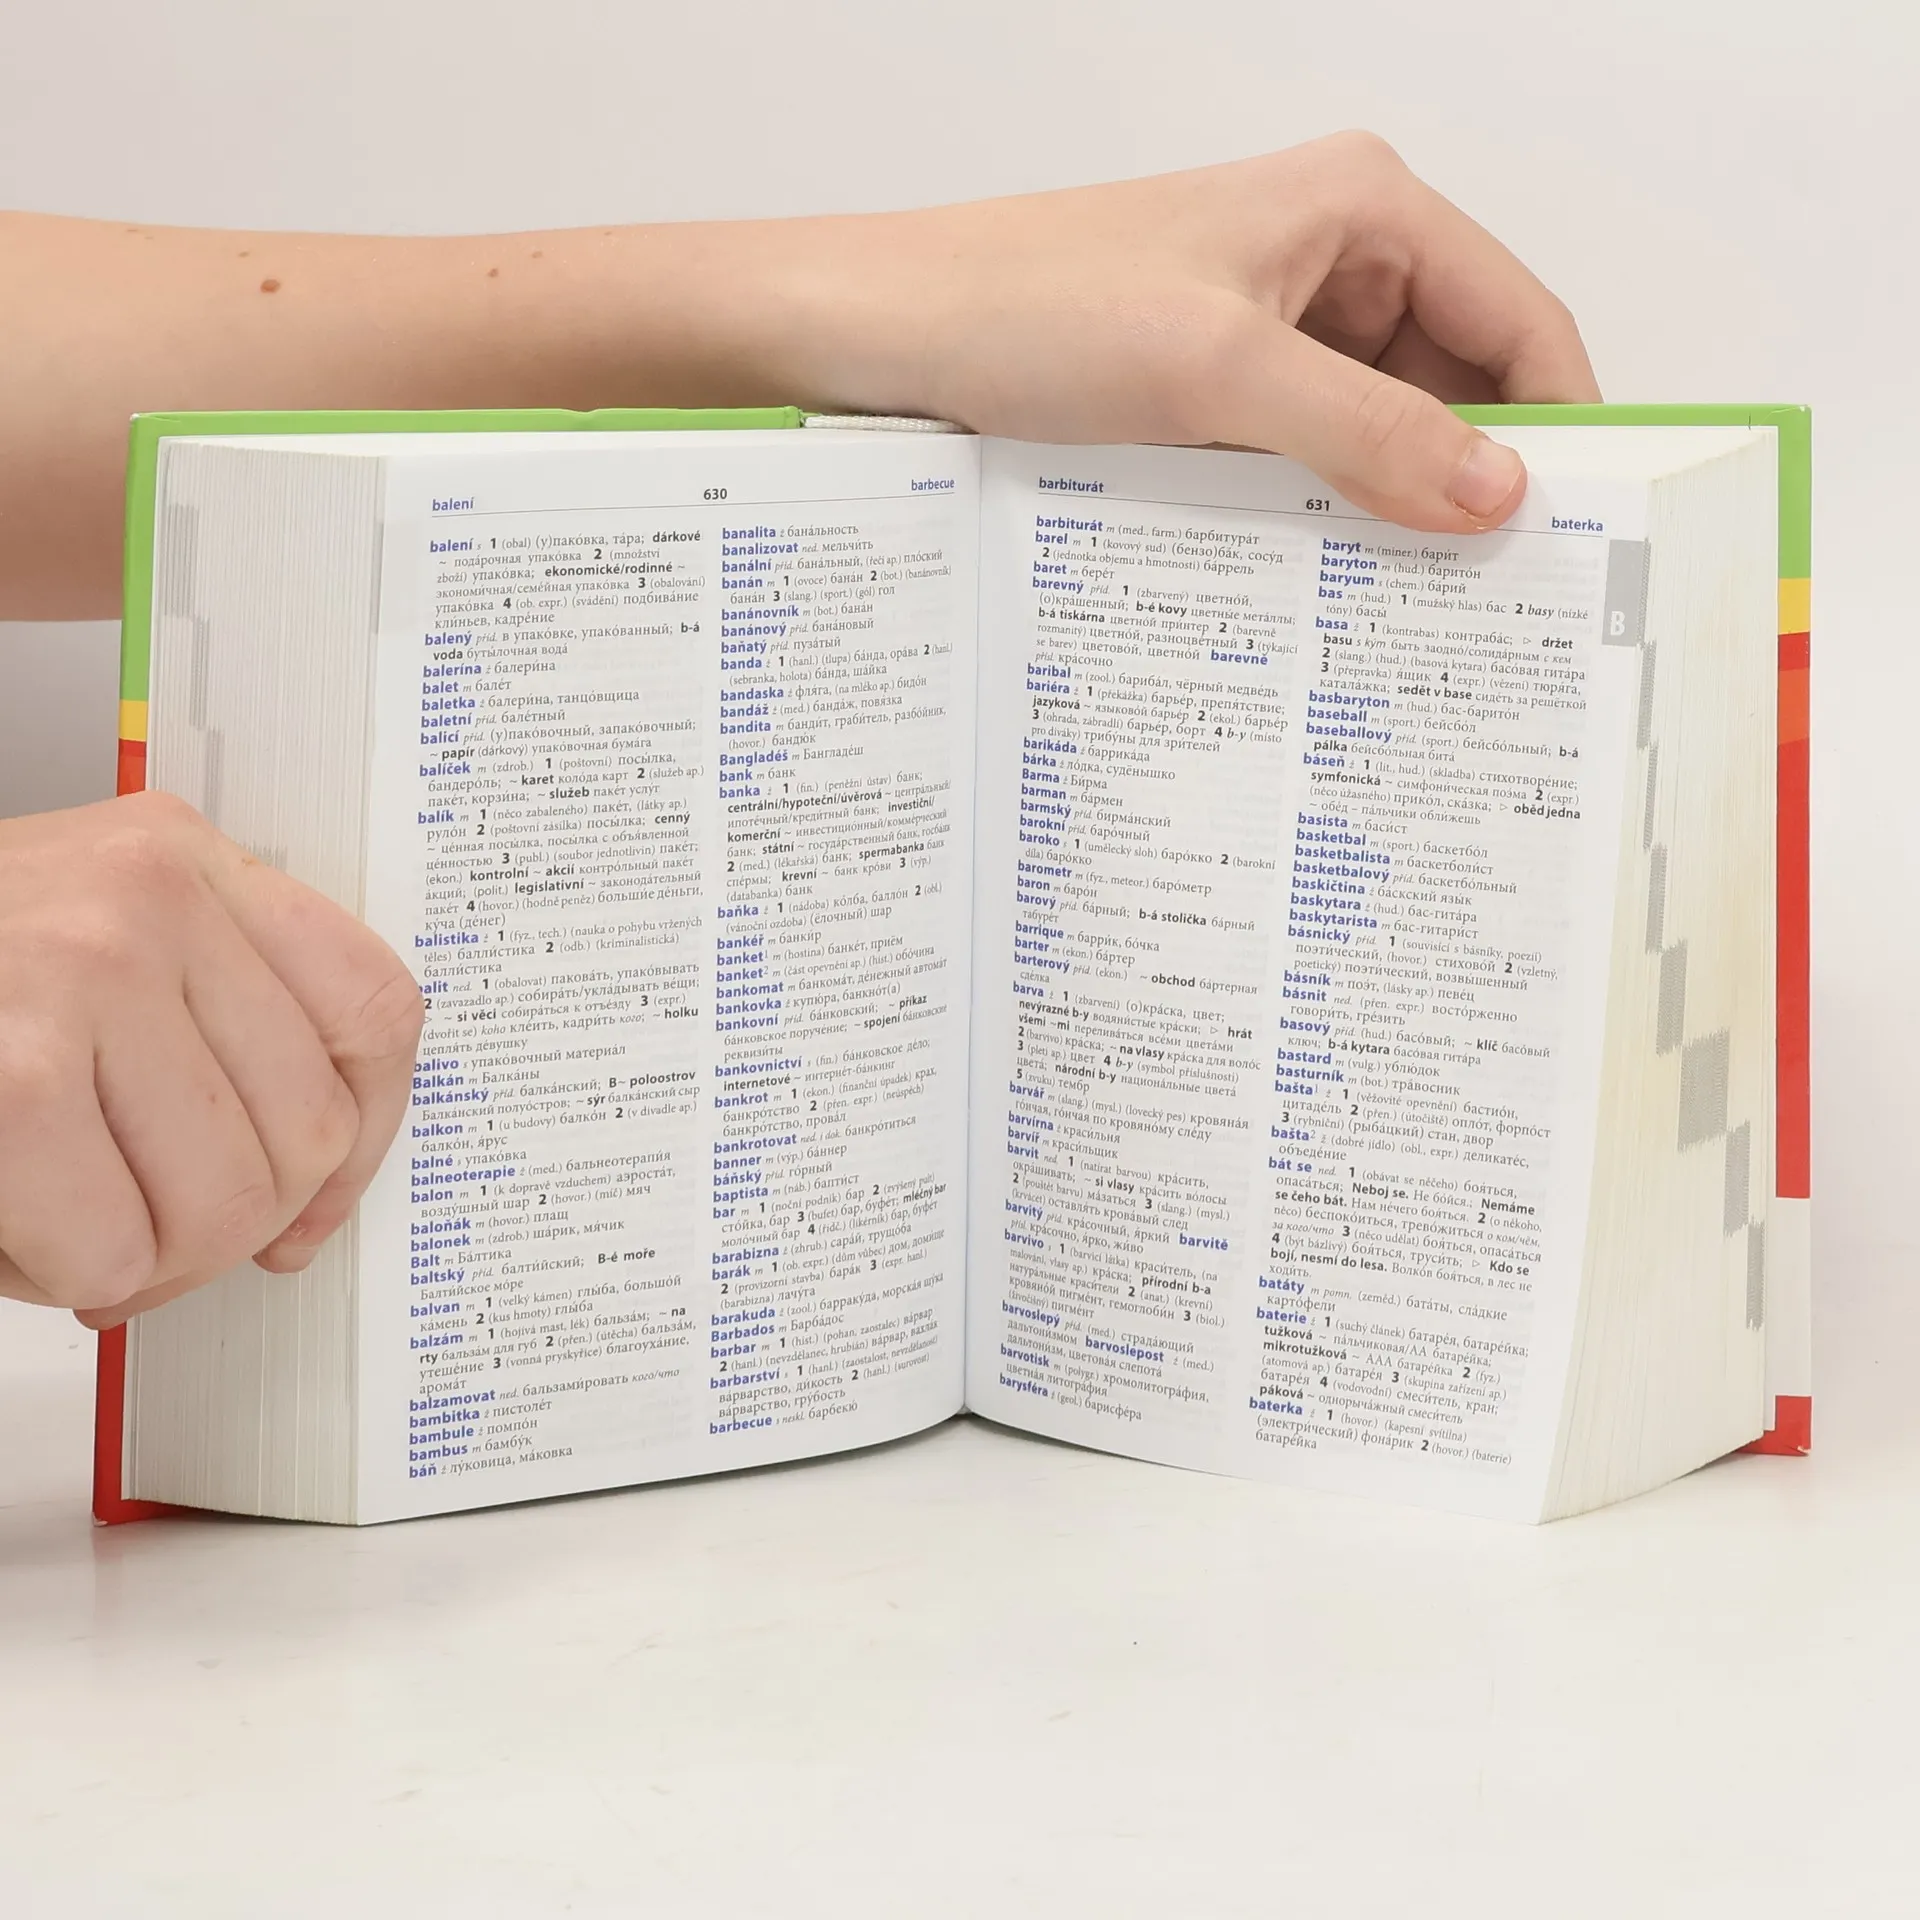 balení 630 barbecue
balení s 1 (obal) (у)пако́вка, та́ра; dárkové
~ пода́рочная упако́вка 2 (množství
zboží) упако́вка; ekonomické/rodinné ~
экономи́чная/семе́йная упако́вка 3 (obalování)
упако́вка 4 (ob. expr.) (svádění) подбива́ние
кли́ньев, кадре́ние
balený příd. в упако́вке, упако́ванный; b-á
voda буты́лочная вода́
balerína ž балери́на
balet m бале́т
baletka ž балери́на, танцо́вщица
baletní příd. бале́тный
balicí příd. (у)пако́вочный, запако́вочный;
~ papír (dárkový) упако́вочная бума́га
balíček m (zdrob.) 1 (poštovní) посы́лка,
бандеро́ль; ~ karet коло́да карт 2 (služeb ap.)
паке́т, корзи́на; ~ služeb паке́т услу́г
balík m 1 (něco zabaleného) паке́т, (látky ap.)
руло́н 2 (poštovní zásilka) посы́лка; cenný
~ це́нная посы́лка, посы́лка с объя́вленной
це́нностью 3 (publ.) (soubor jednotlivin) паке́т;
(ekon.) kontrolní ~ akcií контро́льный паке́т
а́кций; (polit.) legislativní ~ законода́тельный
паке́т 4 (hovor.) (hodně peněz) больши́е де́ньги,
ку́ча (де́нег)
balistika ž 1 (fyz., tech.) (nauka o pohybu vržených
těles) балли́стика 2 (odb.) (kriminalistická)
балли́стика
balit ned. 1 (obalovat) пакова́ть, упако́вывать
2 (zavazadlo ap.) собира́ть/укла́дывать ве́щи;
▷ ~ si věci собира́ться к отъе́зду 3 (expr.)
(dvořit se) koho кле́ить, кадри́ть кого; ~ holku
цепля́ть де́вушку
balivo s упако́вочный материа́л
Balkán m Балка́ны
balkánský příd. балка́нский; B~ poloostrov
Балка́нский полуо́стров; ~ sýr балка́нский сыр
balkon m 1 (u budovy) балко́н 2 (v divadle ap.)
балко́н, я́рус
balné s упако́вка
balneoterapie ž (med.) бальнеотерапи́я
balon m 1 (k dopravě vzduchem) аэроста́т,
возду́шный шар 2 (hovor.) (míč) мяч
baloňák m (hovor.) плащ
balonek m (zdrob.) ша́рик, мя́чик
Balt m Ба́лтика
baltský příd. балти́йский; B-é moře
Балти́йское мо́ре
balvan m 1 (velký kámen) глы́ба, большо́й
ка́мень 2 (kus hmoty) глы́ба
balzám m 1 (hojivá mast, lék) бальза́м; ~ na
rty бальза́м для губ 2 (přen.) (útěcha) бальза́м,
утеше́ние 3 (vonná pryskyřice) благоуха́ние,
арома́т
balzamovat ned. бальзами́ровать кого/что
bambitka ž пистоле́т
bambule ž помпо́н
bambus m бамбу́к
báň ž лу́ковица, ма́ковка
banalita ž бана́льность
banalizovat ned. мельчи́ть
banální příd. бана́льный, (řeči ap.) пло́ский
banán m 1 (ovoce) бана́н 2 (bot.) (banánovník)
бана́н 3 (slang.) (sport.) (gól) гол
banánovník m (bot.) бана́н
banánový příd. бана́новый
baňatý příd. пуза́тый
banda ž 1 (hanl.) (tlupa) ба́нда, ора́ва 2 (hanl.)
(sebranka, holota) ба́нда, ша́йка
bandaska ž фля́га, (na mléko ap.) бидо́н
bandáž ž (med.) банда́ж, повя́зка
bandita m банди́т, граби́тель, разбо́йник,
(hovor.) бандю́к
Bangladéš m Бангладе́ш
bank m банк
banka ž 1 (fin.) (peněžní ústav) банк;
centrální/hypoteční/úvěrová ~ центра́льный/
ипоте́чный/креди́тный банк; investiční/
komerční ~ инвестицио́нный/комме́рческий
банк; státní ~ госуда́рственный банк, госба́нк
2 (med.) (lékařská) банк; spermabanka банк
спе́рмы; krevní ~ банк кро́ви 3 (výp.)
(databanka) банк
baňka ž 1 (nádoba) ко́лба, балло́н 2 (obl.)
(vánoční ozdoba) (ёлочный) шар
bankéř m банки́р
banket¹ m (hostina) банке́т, приём
banket² m (část opevnění ap.) (hist.) обо́чина
bankomat m банкома́т, де́нежный автома́т
bankovka ž купю́ра, банкно́т(а)
bankovní příd. ба́нковский; ~ příkaz
ба́нковское поруче́ние; ~ spojení ба́нковские
реквизи́ты
bankovnictví s (fin.) ба́нковское де́ло;
internetové ~ интерне́т-ба́нкинг
bankrot m 1 (ekon.) (finanční úpadek) крах,
банкро́тство 2 (přen. expr.) (neúspěch)
банкро́тство, прова́л
bankrotovat ned. i dok. банкро́титься
banner m (výp.) ба́ннер
báňský příd. го́рный
baptista m (náb.) бапти́ст
bar m 1 (noční podnik) бар 2 (zvýšený pult)
сто́йка, бар 3 (bufet) бар, буфе́т; mléčný bar
моло́чный бар 4 (řidč.) (likérník) бар, буфе́т
barabizna ž (zhrub.) сара́й, трущо́ба
barák m 1 (ob. expr.) (dům vůbec) дом, доми́ще
2 (provizorní stavba) бара́к 3 (expr. hanl.)
(barabizna) лачу́га
barakuda ž (zool.) барраку́да, морска́я щу́ка
Barbados m Барба́дос
barbar m 1 (hist.) (pohan, zaostalec) ва́рвар
2 (hanl.) (nevzdělanec, hrubián) ва́рвар, вахла́к
barbarství s 1 (hanl.) (zaostalost, nevzdělanost)
ва́рварство, ди́кость 2 (hanl.) (surovost)
ва́рварство, гру́бость
barbecue s neskl. барбекю́
barbiturát 631 baterka
barbiturát m (med., farm.) барбитура́т
barel m 1 (kovový sud) (бензо)ба́к, сосу́д
2 (jednotka objemu a hmotnosti) ба́ррель
baret m бере́т
barevný příd. 1 (zbarvený) цветно́й,
(о)кра́шенный; b-é kovy цветны́е мета́ллы;
b-á tiskárna цветно́й при́нтер 2 (barevně
rozmanitý) цветно́й, разноцве́тный 3 (týkající
se barev) цветово́й, цветно́й barevně
příd. кра́сочно
baribal m (zool.) бариба́л, чёрный медве́дь
bariéra ž 1 (překážka) барье́р, препя́тствие;
jazyková ~ языково́й барье́р 2 (ekol.) барье́р
3 (ohrada, zábradlí) барье́р, борт 4 b-y (místo
pro diváky) трибу́ны для зри́телей
barikáda ž баррика́да
bárka ž ло́дка, судёнышко
Barma ž Би́рма
barman m ба́рмен
barmský příd. бирма́нский
barokní příd. баро́чный
baroko s 1 (umělecký sloh) баро́кко 2 (barokní
díla) баро́кко
barometr m (fyz., meteor.) баро́метр
baron m баро́н
barový příd. ба́рный; b-á stolička ба́рный
табуре́т
barrique m ба́ррик, бо́чка
barter m (ekon.) ба́ртер
barterový příd. (ekon.) ~ obchod ба́ртерная
сде́лка
barva ž 1 (zbarvení) (о)кра́ска, цвет;
nevýrazné b-y водяни́стые кра́ски; ▷ hrát
všemi ~mi перелива́ться все́ми цвета́ми
2 (barvivo) кра́ска; ~ na vlasy кра́ска для воло́с
3 (pleti ap.) цвет 4 b-y (symbol příslušnosti)
цвета́; národní b-y национа́льные цвета́
5 (zvuku) тембр
barvář m (slang.) (mysl.) (lovecký pes) кровяна́я
го́нчая, го́нчая по кровяно́му сле́ду
barvírna ž краси́льня
barvíř m краси́льщик
barvit ned. 1 (natírat barvou) кра́сить,
окра́шивать; ~ si vlasy кра́сить во́лосы
2 (pouštět barvu) ма́заться 3 (slang.) (mysl.)
(krvácet) оставля́ть крова́вый след
barvitý příd. кра́сочный, я́ркий barvitě
přísl. кра́сочно, я́рко, жи́во
barvivo s 1 (barvicí látka) краси́тель, (na
malování, vlasy ap.) кра́ска; přírodní b-a
натура́льные краси́тели 2 (anat.) (krevní)
кровяно́й пигме́нт, гемоглоби́н 3 (biol.)
(živočišný) пигме́нт
barvoslepý příd. (med.) страда́ющий
дальтони́змом barvoslepost ž (med.)
дальтони́зм, цветова́я слепота́
barvotisk m (polygr.) хромолитогра́фия,
цветна́я литогра́фия
barysféra ž (geol.) барисфе́ра
baryt m (miner.) бари́т
baryton m (hud.) барито́н
baryum s (chem.) ба́рий
bas m (hud.) 1 (mužský hlas) бас 2 basy (nízké
tóny) басы́
basa ž 1 (kontrabas) контраба́с; ▷ držet
basu s kým быть заодно́/солида́рным с кем
2 (slang.) (hud.) (basová kytara) ба́совая гита́ра
3 (přepravka) я́щик 4 (expr.) (vězení) тюря́га,
катала́жка; sedět v base сиде́ть за решёткой
basbaryton m (hud.) бас-барито́н
baseball m (sport.) бейсбо́л
baseballový příd. (sport.) бейсбо́льный; b-á
pálka бейсбо́льная би́та
báseň ž 1 (lit., hud.) (skladba) стихотворе́ние;
symfonická ~ симфони́ческая поэ́ма 2 (expr.)
(něco úžasného) прико́л, ска́зка; ▷ oběd jedna
~ обе́д – па́льчики обли́жешь
basista m баси́ст
basketbal m (sport.) баскетбо́л
basketbalista m баскетболи́ст
basketbalový příd. баскетбо́льный
baskičtina ž ба́скский язы́к
baskytara ž (hud.) бас-гита́ра
baskytarista m бас-гитари́ст
básnický příd. 1 (souvisící s básníky, poezií)
поэти́ческий, (hovor.) стихово́й 2 (vzletný,
poetický) поэти́ческий, возвы́шенный
básník m поэ́т, (lásky ap.) певе́ц
básnit ned. (přen. expr.) восто́рженно
говори́ть, гре́зить
basový příd. (hud.) ба́совый; ~ klíč ба́совый
ключ; b-á kytara ба́совая гита́ра
bastard m (vulg.) ублю́док
basturník m (bot.) тра́восник
bašta¹ ž 1 (věžovité opevnění) бастио́н,
цитаде́ль 2 (přen.) (útočiště) опло́т, форпо́ст
3 (rybniční) (рыба́цкий) стан, двор
bašta² ž (dobré jídlo) (obl., expr.) деликате́с,
объеде́ние
bát se ned. 1 (obávat se něčeho) боя́ться,
опаса́ться; Neboj se. Не бо́йся.; Nemáme
se čeho bát. Нам не́чего боя́ться. 2 (o někoho,
něco) беспоко́иться, трево́житься о ком/чём,
за кого/что 3 (něco udělat) боя́ться, опаса́ться
4 (být bázlivý) боя́ться, тру́сить; ▷ Kdo se
bojí, nesmí do lesa. Волко́в боя́ться, в лес не
ходи́ть.
batáty m pomn. (zeměd.) бата́ты, сла́дкие
карто́фели
baterie ž 1 (suchý článek) батаре́я, батаре́йка;
tužková ~ па́льчиковая/АА батаре́йка;
mikrotužková ~ ААА батаре́йка 2 (fyz.)
(atomová ap.) батаре́я 3 (skupina zařízení ap.)
батаре́я 4 (vodovodní) смеси́тель, кран;
páková ~ однорыча́жный смеси́тель
baterka ž 1 (hovor.) (kapesní svítilna)
(электри́ческий) фона́рик 2 (hovor.) (baterie)
батаре́йка
B